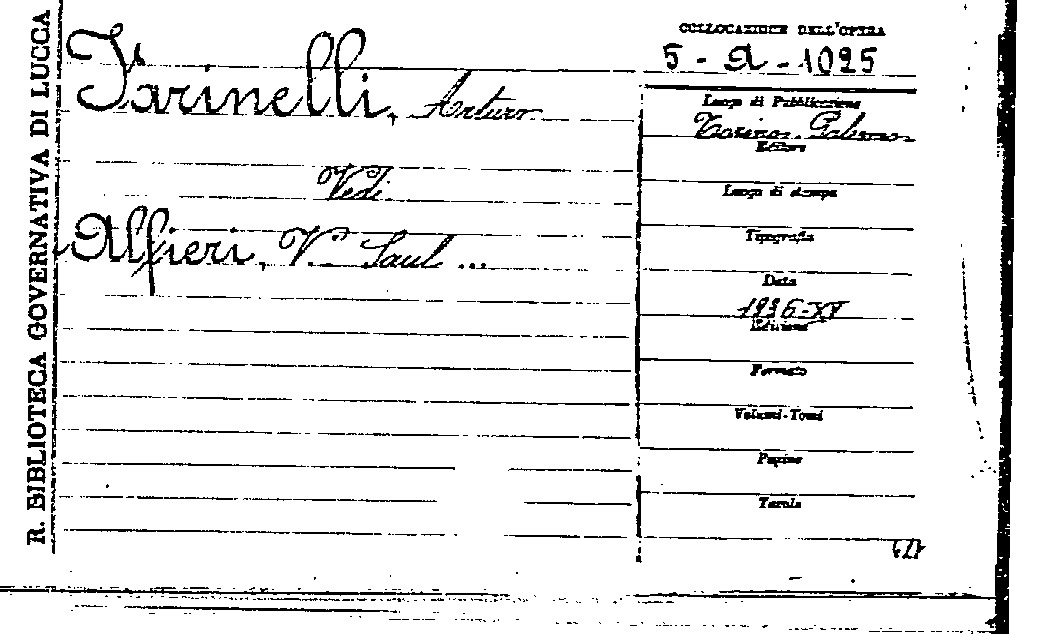 R. BIBLIOTECA GOVERNATIVA DI LUCCA
Farinelli, Arturo
Vedi
Alfieri, V. Saul ...
COLLOCAZIONE DELL'OPERA
5 - A - 1025
Luogo di Pubblicazione
Torino. Palermo
Editore
Luogo di stampa
Tipografia
Data
1936-XV
Edizione
Formato
Volumi-Tomi
Pagine
Tavole